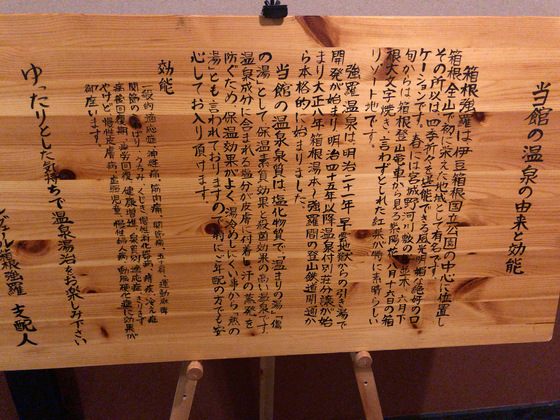 当館の温泉の由来と効能
箱根強羅は伊豆箱根国立公園の中心に位置し
箱根全山で初に栄えた地域として有名です
その所以は四季折々を堪能できる風光明媚な絶好のロ
ケーションです。春には宮城野河川敷の桜並木 六月下
旬からは箱根登山電車から見る紫陽花 八月十六日の箱
根大文字焼き、言わずとしれた紅葉が特に素晴らしい
リゾート地です。
強羅温泉は、明治二十七年 早雲地獄からの引き湯で
開発が始まり明治四十五年以降温泉付別荘分譲が始
まり大正八年箱根湯本〜強羅間の登山鉄道開通か
ら本格的に始まりました。
当館の温泉泉質は、塩化物質で「温まりの湯」「傷
の湯」として、保温美質効果と殺菌効果の高い薬泉です
温泉成分に含まれる塩分が皮膚に付着し、汗の蒸発を
防ぐため、保温効果がよく湯冷めしにくい事から「熱の
湯」とも言われておりますので特にご年配の方でも安
心してお入り頂けます。
効能
一般的適応症 神経痛 筋肉痛 関節痛 五十肩 運動麻痺
関節のこわばり うちみ くじき 慢性消化器病 痔疾 冷え症
病後回復期 疲労回復 健康増進
やけど 慢性皮膚病 虚弱児童 慢性婦人病 動脈硬化症に効果が
御座います。
ゆったりとした気持ちで温泉湯治をお楽しみ下さい
箱根強羅 支配人